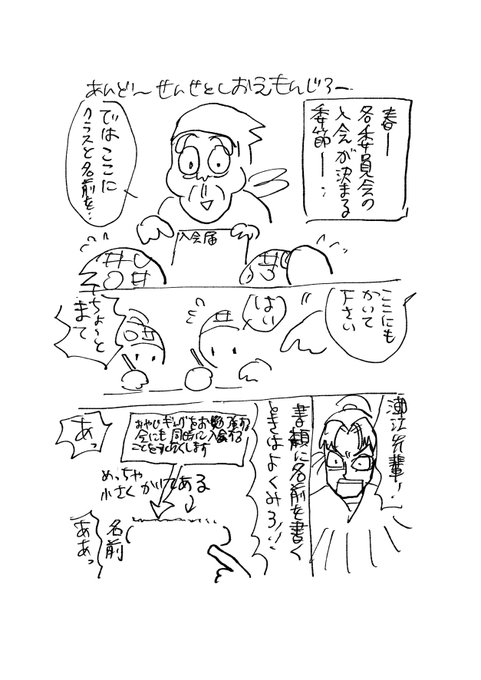 あんどぅ〜せんせとしおえもんじろー
春ー
各委員会の
入会が決まる
季節ー…
ではここに
クラスと名前を…
入会届
ここにも
かいて
下さい
はい
ちょーっと
まて
潮江先輩!
書類に名前を書く
ときはよくみろ!!
会にも同時に入会する
めっちゃ
小さくかいてある
あっ
名前
ああっ